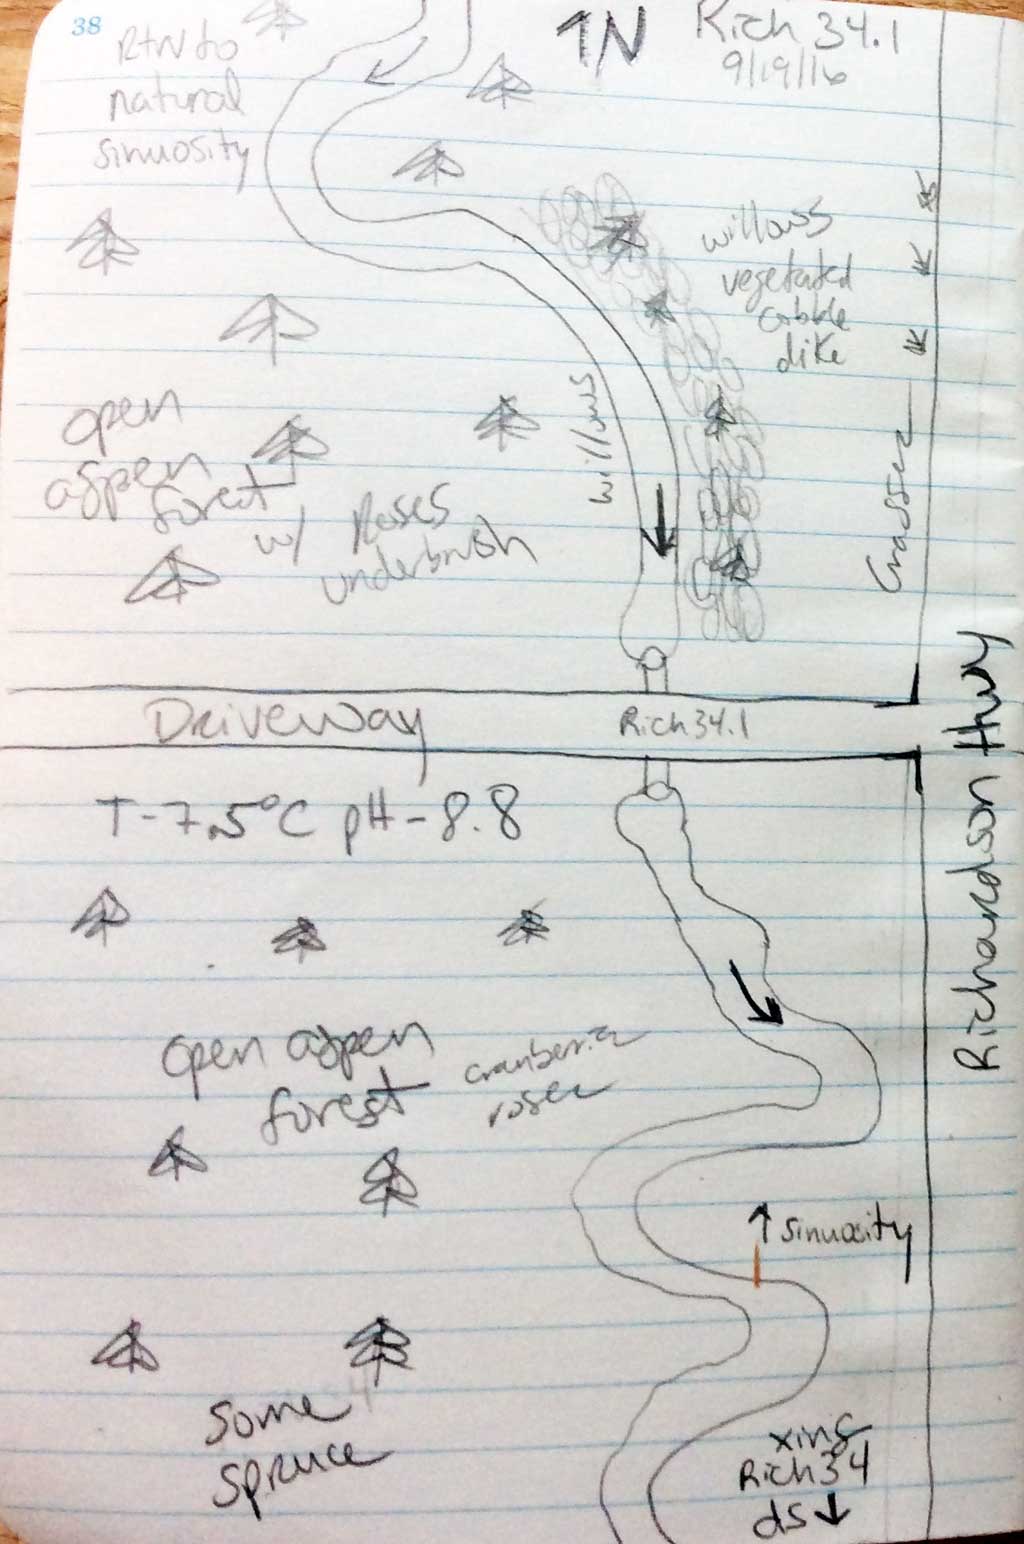 38
↑N
Rich 34.1
9/19/16
RtN to
natural
sinuosity
willows
vegetated
cobble
dike
open
aspen
forest
w/ Roses
underbrush
willows
Grasses
Driveway
Rich 34.1
Richardson Hwy
T-7.5°C pH-8.8
open aspen
forest
cranberries
roses
↑ sinuosity
some
spruce
xing
Rich 34
ds ↓